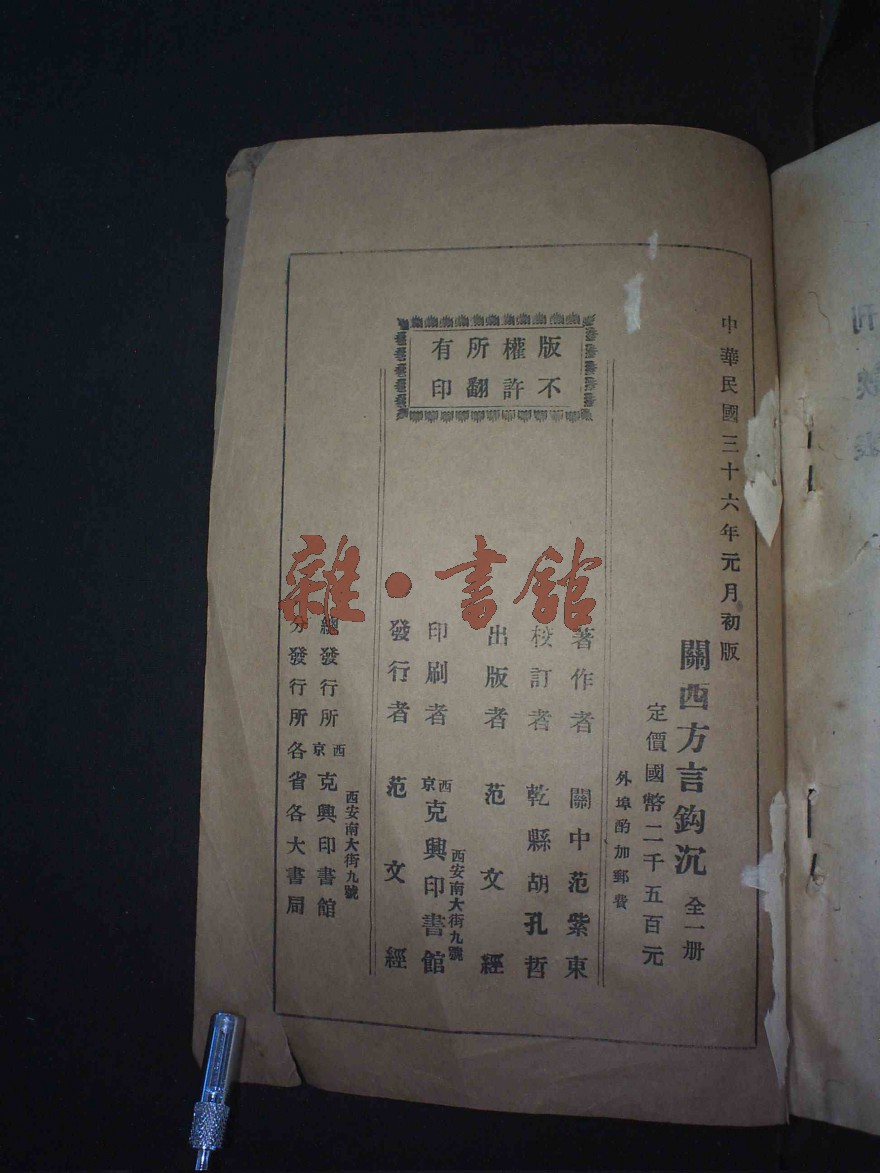 中華民國三十六年元月初版
關西方言鈎沉 全一册
定價國幣二千五百元
外埠酌加郵費
版權所有
不許翻印
著作者 關中范紫東
校訂者 乾縣胡孔哲
出版者 范文經
西安南大街九號
印刷者 西京克興印書館
發行者 范文經
西安南大街九號
總發行所 西京克興印書館
分發行所各省各大書局
雜·書館